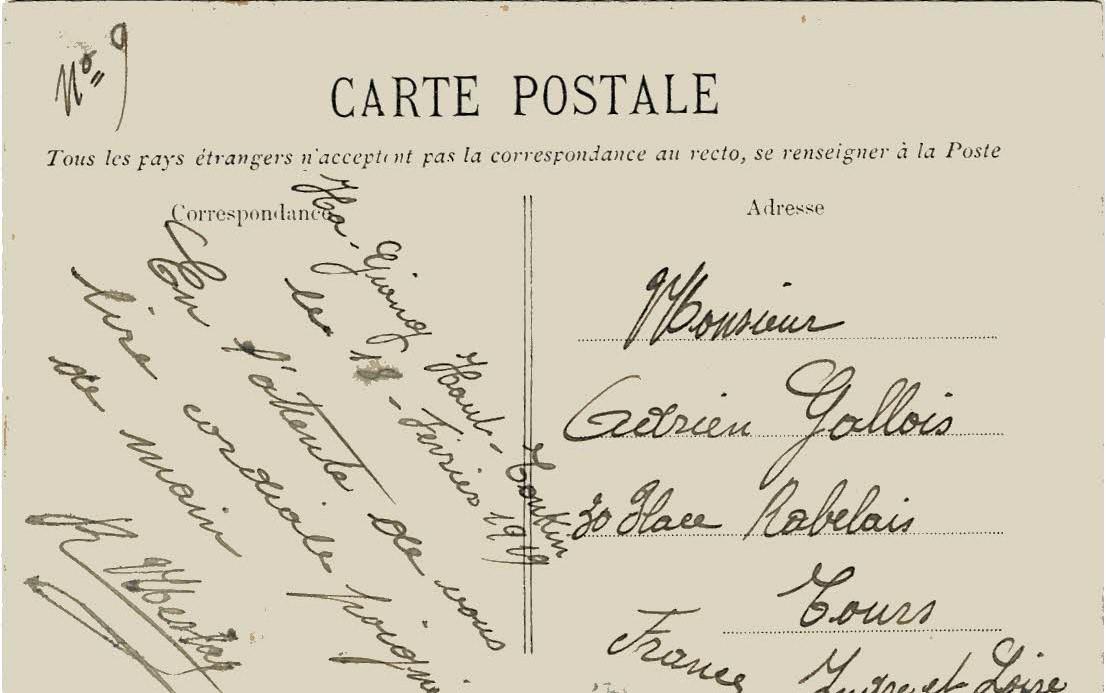 Nº 9
CARTE POSTALE
Tous les pays étrangers n'acceptent pas la correspondance au recto, se renseigner à la Poste
Correspondance
Ha-Giang Haut-Tonkin
le 18-Février 1919
En l'attente de vous
lire cordiale poigné
de main
Adresse
Monsieur
Adrien Gallois
30 Place Rabelais
Tours
France Indre et Loire